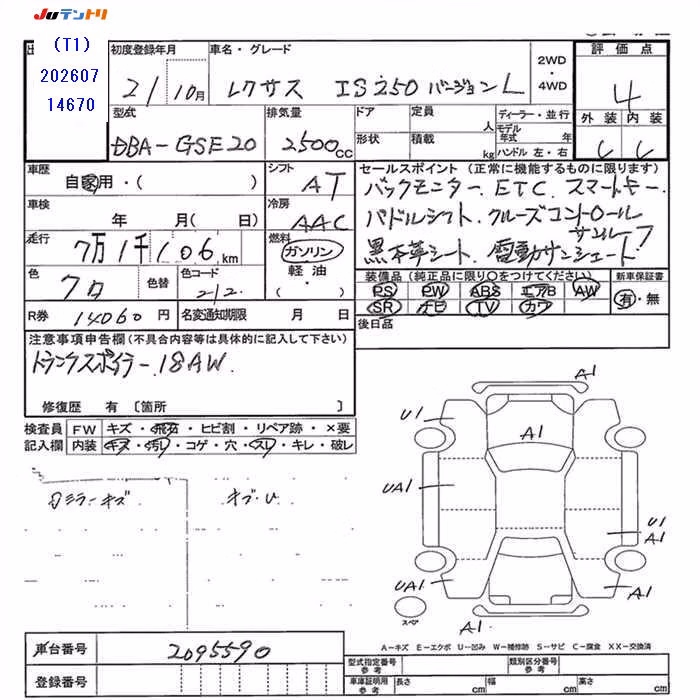 Juテントリ
(T1)
202607
14670
初度登録年月
21 10月
車名・グレード
レクサス IS250 バージョンL
2WD
・
4WD
評価点
4
外装 内装
C C
型式
DBA-GSE20
排気量
2500cc
ドア
形状
定員 人
積載 kg
ディーラー・並行
モデル年式 年
ハンドル 左・右
車歴
自家用・( )
シフト
AT
車検
年 月(日)
冷房
AAC
走行
7万1千106km
燃料
ガソリン
軽油
( )
色
クロ
色替
色コード
212
R券 14060円
名変通知期限 月 日
セールスポイント(正常に機能するものに限ります)
バックモニター. ETC. スマートキー.
パドルシフト. クルーズコントロール
サンルーフ
黒本革シート. 電動サンシェード
装備品(純正品に限り○をつけてください)
PS PW ABS エアB AW
SR ナビ TV カワ
新車保証書
有・無
後日品
注意事項申告欄(不具合内容等は具体的に記入して下さい)
トランクスポイラー. 18AW.
修復歴 有〔箇所 〕
検査員
記入欄
FW キズ・飛石・ヒビ割・リペア跡・×要
内装 キズ・汚レ・コゲ・穴・スレ・キレ・破レ
ミラーキズ
A1
U1
A1
UA1
U1
A1
UA1
A1
A1
スペア
A-キズ E-エクボ U-凹み W-補修跡 S-サビ C-腐食 XX-交換済
車台番号 2095590
登録番号
型式指定番号
参考
類別区分番号
参考
車庫証明用
参考
長さ cm
幅 cm
高さ cm